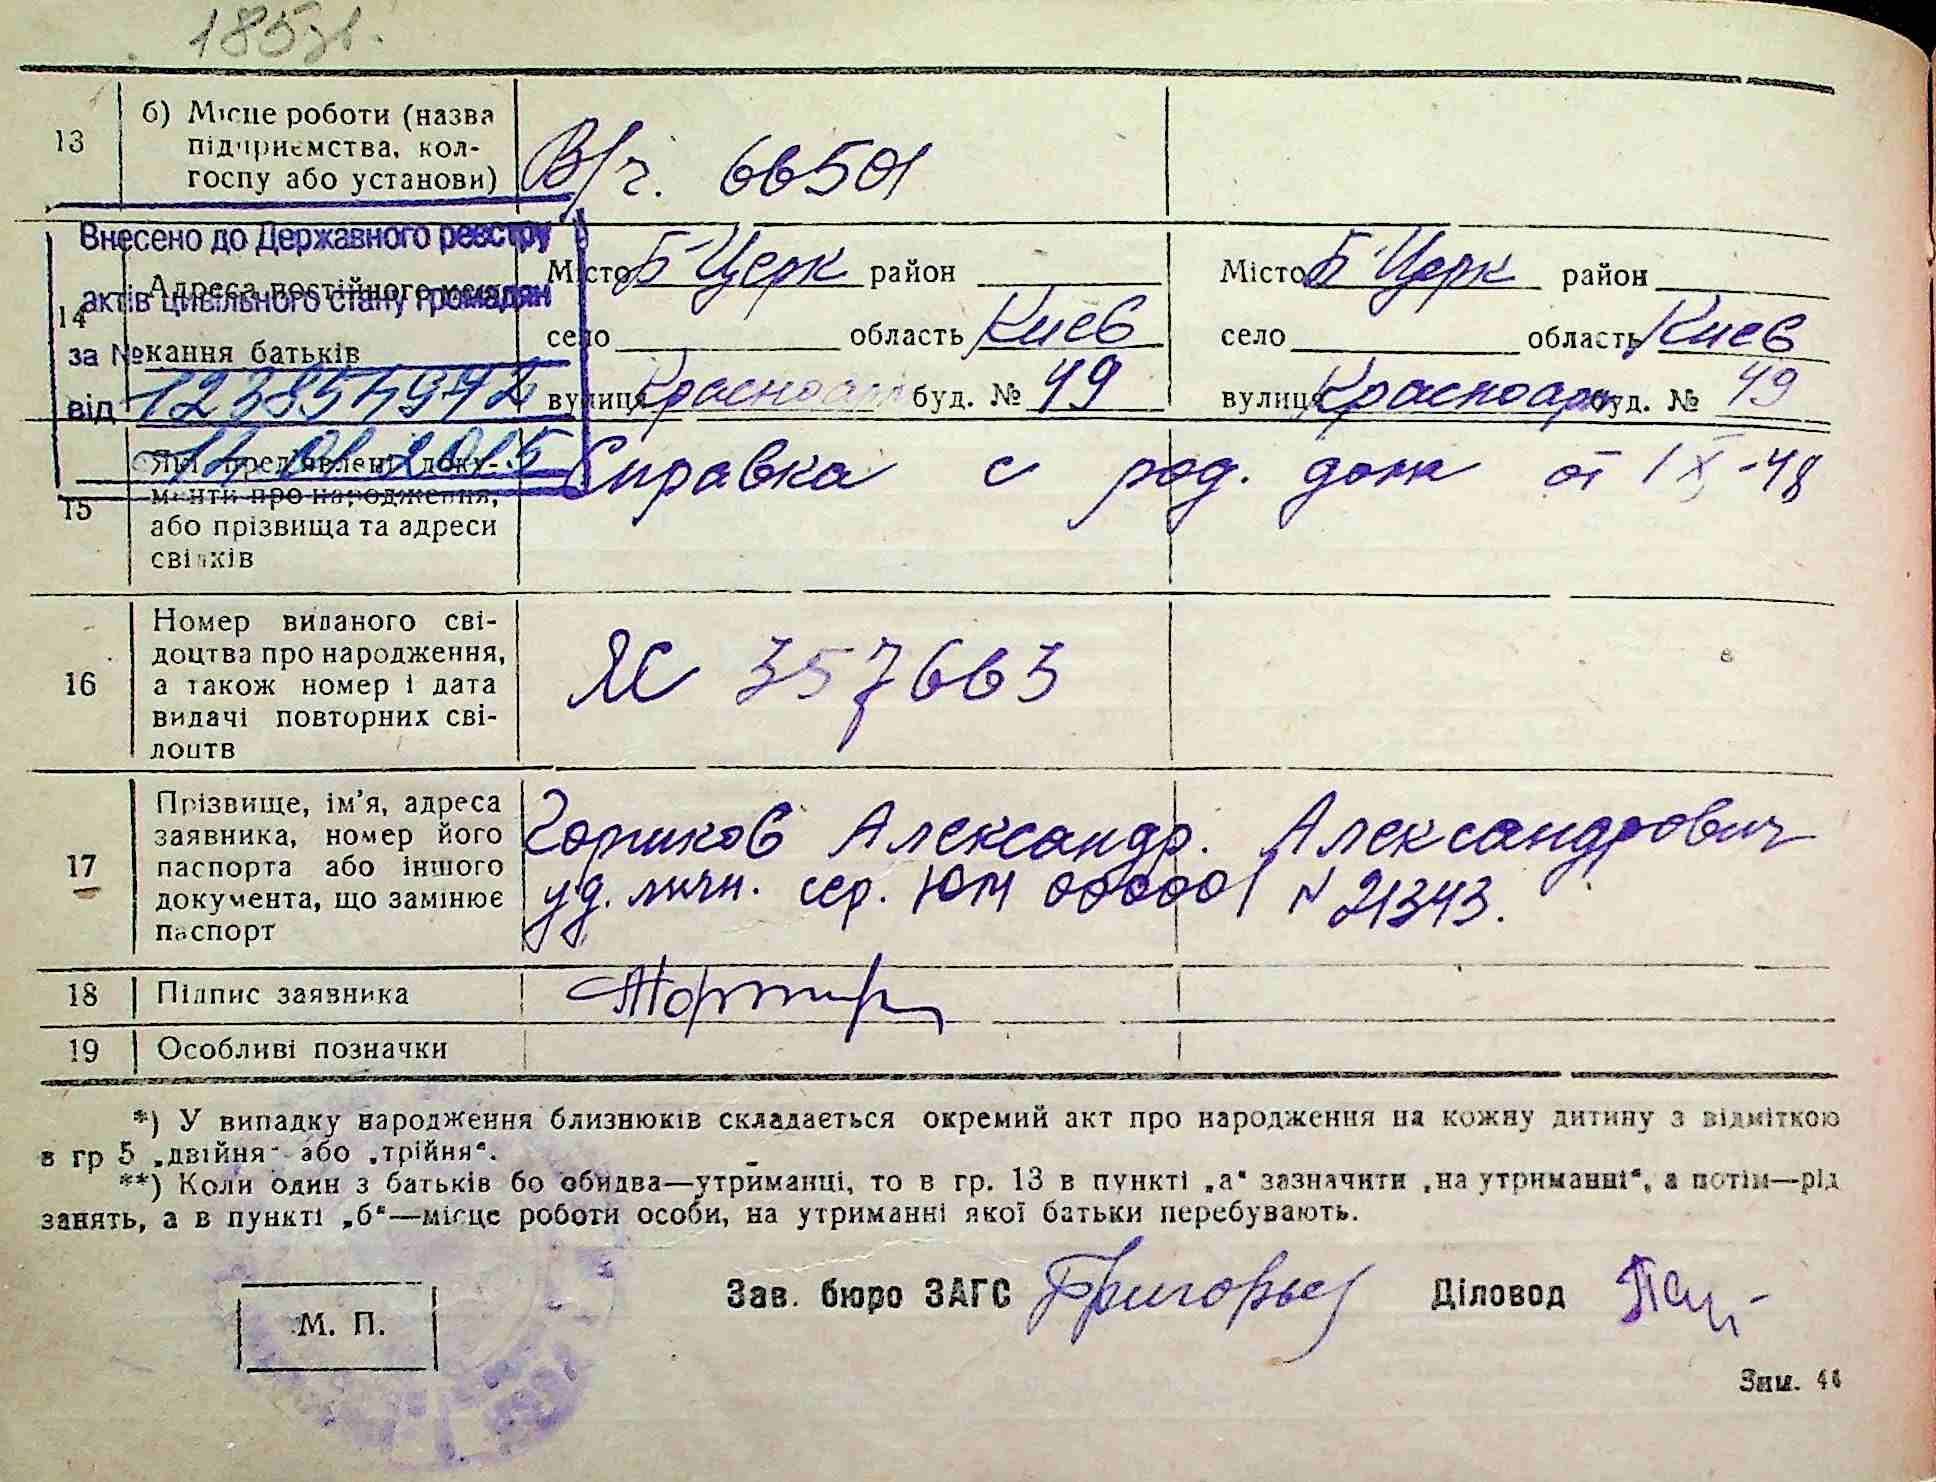 13
б) Місце роботи (назва
підприємства, кол-
госпу або установи)
В/ч. 66501
Внесено до Державного реєстру
актів цивільного стану громадян
за №
від
14.01.2015
14
Адреса постійного
кання батьків
Місто Б Церк район
село область Киев
вулиця Красноарм буд. № 49
Місто Б Церк район
село область Киев
вулиця Красноарм буд. № 49
15
Які пред'явлені доку-
менти про народження,
або прізвища та адреси
свідків
Справка с род. дома от IX-48
16
Номер виданого сві-
доцтва про народження,
а також номер і дата
видачі повторних сві-
доцтв
ЯС 357663
17
Прізвище, ім'я, адреса
заявника, номер його
паспорта або іншого
документа, що замінює
паспорт
Александр. Александрович
уд. личн. сер. ЮМ 000001 N 21343.
18
Підпис заявника
19
Особливі позначки
*) У випадку народження близнюків складається окремий акт про народження на кожну дитину з відміткою
в гр 5 „двійня" або „трійня".
**) Коли один з батьків бо обидва—утриманці, то в гр. 13 в пункті „а" зазначити „на утриманні", а потім—рід
занять, а в пункті „б"—місце роботи особи, на утриманні якої батьки перебувають.
М. П.
Зав. бюро ЗАГС Григорьев Діловод
Зам. 44